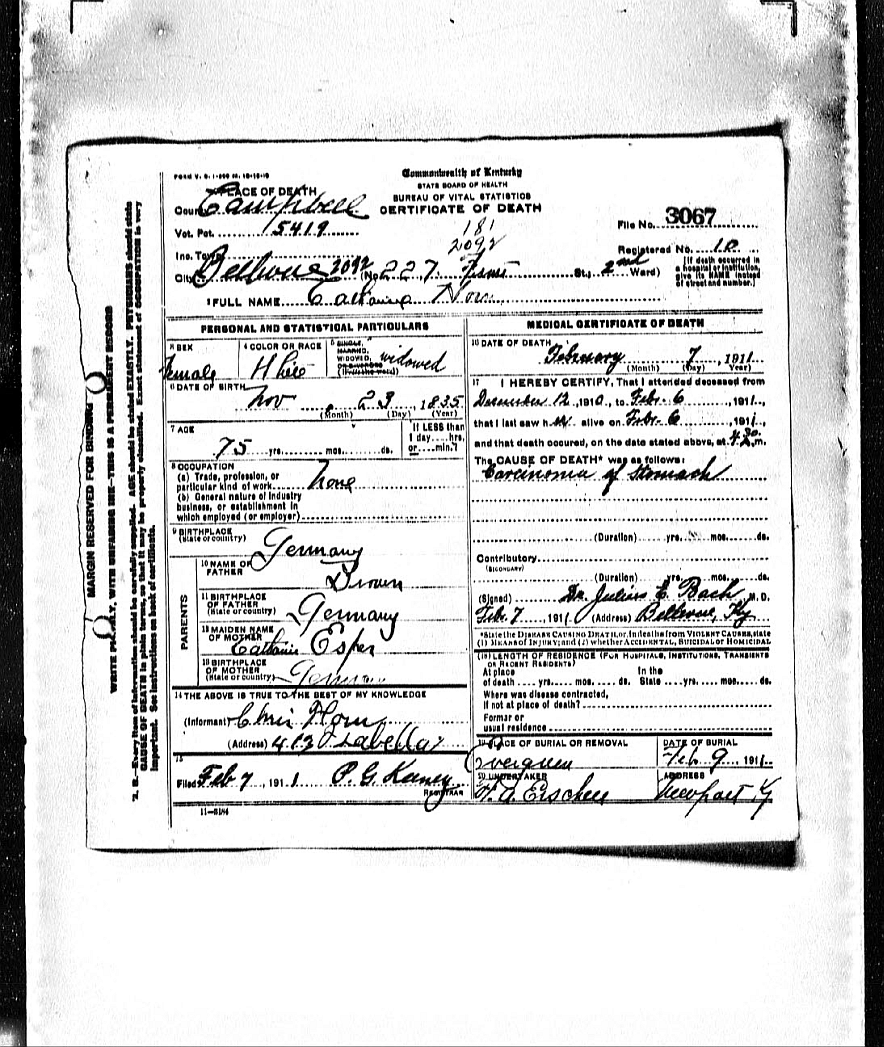 FORM V. S. 1-
Commonwealth of Kentucky
STATE BOARD OF HEALTH
BUREAU OF VITAL STATISTICS
CERTIFICATE OF DEATH
PLACE OF DEATH
County Campbell
Vot. Pct. 15419
181
2092
File No. 3067
Inc. Town
Registered No. 10
City Bellevue 2092 (No. 227 St.; 2nd Ward)
[If death occurred in a hospital or institution, give its NAME instead of street and number.]
FULL NAME
PERSONAL AND STATISTICAL PARTICULARS
3 SEX Female
4 COLOR OR RACE White
5 SINGLE, MARRIED, WIDOWED, OR DIVORCED widowed
6 DATE OF BIRTH
Nov 23, 1835
(Month) (Day) (Year)
7 AGE
75 yrs. mos. ds.
If LESS than 1 day, hrs. or min.?
8 OCCUPATION
(a) Trade, profession, or particular kind of work None
(b) General nature of industry business, or establishment in which employed (or employer)
9 BIRTHPLACE
(State or country) Germany
PARENTS
10 NAME OF FATHER
11 BIRTHPLACE OF FATHER
(State or country) Germany
12 MAIDEN NAME OF MOTHER Esper
13 BIRTHPLACE OF MOTHER
(State or country) Germany
14 THE ABOVE IS TRUE TO THE BEST OF MY KNOWLEDGE
(Informant)
(Address)
15
Filed Feb 7, 1911 P. G. Keeney
REGISTRAR
11-3184
MEDICAL CERTIFICATE OF DEATH
16 DATE OF DEATH
February 7, 1911
(Month) (Day) (Year)
17 I HEREBY CERTIFY, That I attended deceased from
December 12, 1910, to Febr. 6, 1911,
that I last saw her alive on Febr. 6, 1911,
and that death occured, on the date stated above, at 4.30 m.
The CAUSE OF DEATH* was as follows:
Carcinoma of Stomach
(Duration) yrs. mos. ds.
Contributory
(SECONDARY)
(Duration) yrs. mos. ds.
(Signed) Dr. Julius E. Bach, M. D.
Feb. 7, 1911 (Address) Bellevue, Ky
*State the DISEASE CAUSING DEATH, or, in deaths from VIOLENT CAUSES, state
(1) MEANS OF INJURY; and (2) whether ACCIDENTAL, SUICIDAL or HOMICIDAL
18 LENGTH OF RESIDENCE (FOR HOSPITALS, INSTITUTIONS, TRANSIENTS OR RECENT RESIDENTS)
At place of death yrs. mos. ds. In the State yrs. mos. ds.
Where was disease contracted,
if not at place of death?
Former or
usual residence
19 PLACE OF BURIAL OR REMOVAL
Evergreen
DATE OF BURIAL
Feb 9, 1911
20 UNDERTAKER
ADDRESS
Newport Ky
MARGIN RESERVED FOR BINDING
WRITE PLAINLY, WITH UNFADING INK—THIS IS A PERMANENT RECORD
N. B.—Every item of information should be carefully supplied. AGE should be stated EXACTLY. PHYSICIANS should state
CAUSE OF DEATH in plain terms, so that it may be properly classified. Exact statement of OCCUPATION is very
important. See instructions on back of certificate.